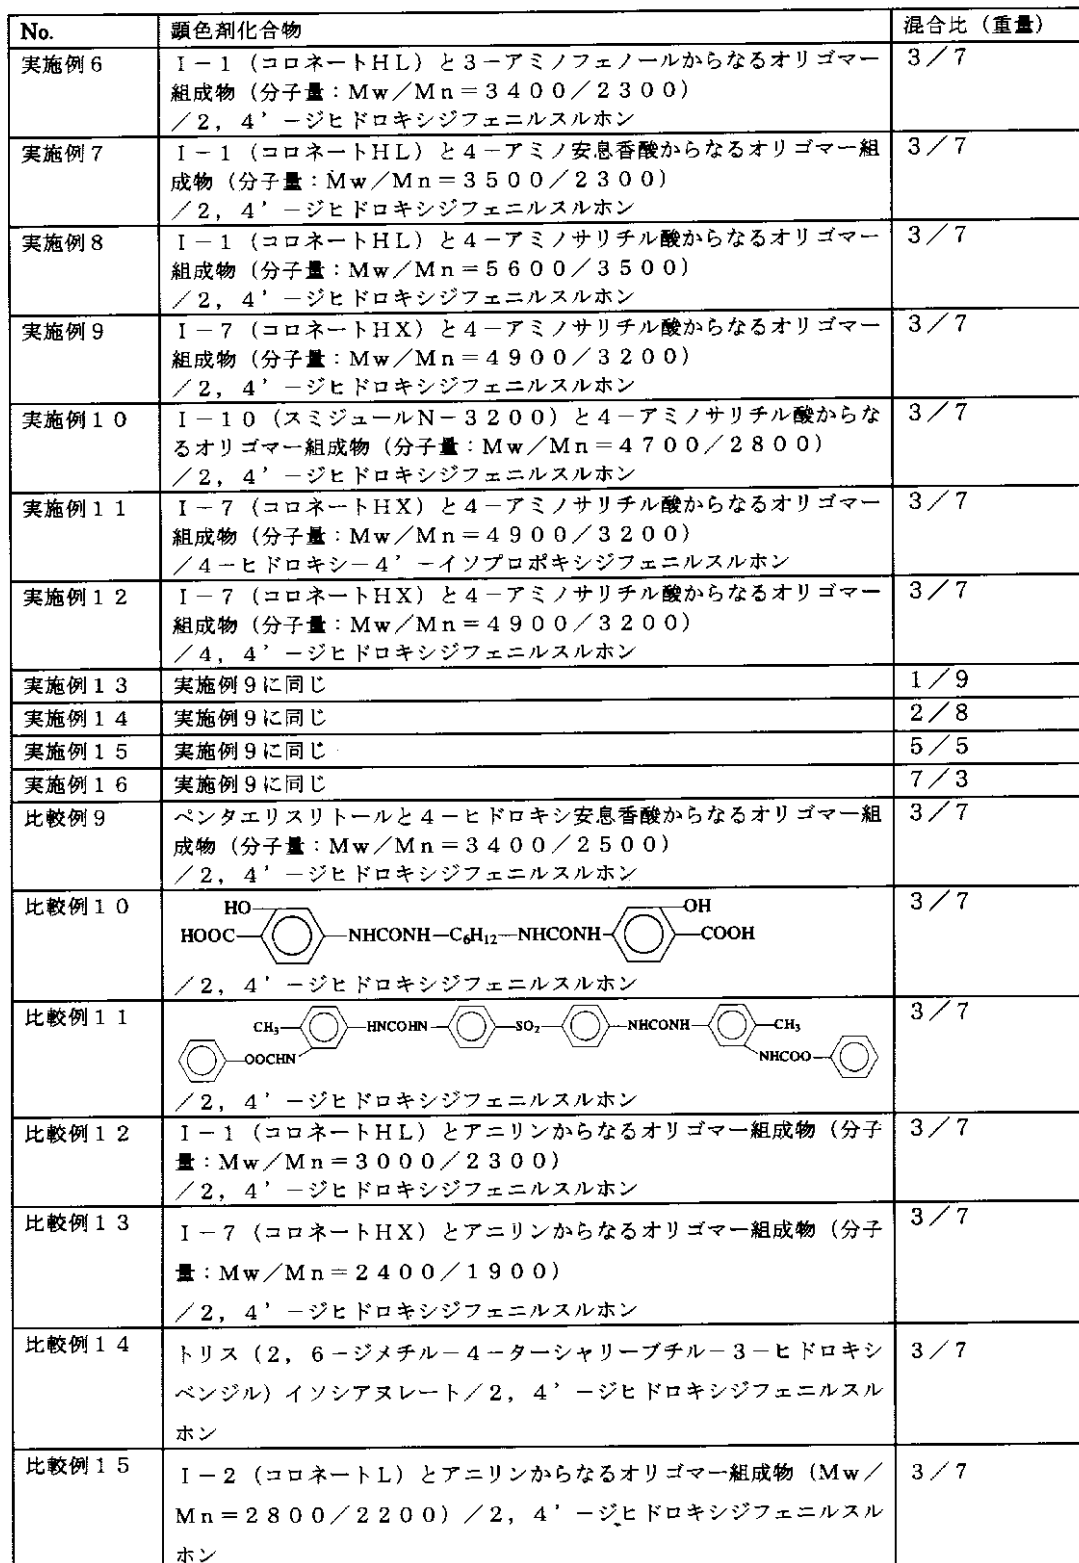 No. 顕色剤化合物 混合比（重量）
実施例６ Ｉ－１（コロネートＨＬ）と３－アミノフェノールからなるオリゴマー 3／7
組成物（分子量：Ｍｗ／Ｍｎ＝３４００／２３００）
／２，４’－ジヒドロキシジフェニルスルホン
実施例７ Ｉ－１（コロネートＨＬ）と４－アミノ安息香酸からなるオリゴマー組 3／7
成物（分子量：Ｍｗ／Ｍｎ＝３５００／２３００）
／２，４’－ジヒドロキシジフェニルスルホン
実施例８ Ｉ－１（コロネートＨＬ）と４－アミノサリチル酸からなるオリゴマー 3／7
組成物（分子量：Ｍｗ／Ｍｎ＝５６００／３５００）
／２，４’－ジヒドロキシジフェニルスルホン
実施例９ Ｉ－７（コロネートＨＸ）と４－アミノサリチル酸からなるオリゴマー 3／7
組成物（分子量：Ｍｗ／Ｍｎ＝４９００／３２００）
／２，４’－ジヒドロキシジフェニルスルホン
実施例１０ Ｉ－１０（スミジュールＮ－３２００）と４－アミノサリチル酸からな 3／7
るオリゴマー組成物（分子量：Ｍｗ／Ｍｎ＝４７００／２８００）
／２，４’－ジヒドロキシジフェニルスルホン
実施例１１ Ｉ－７（コロネートＨＸ）と４－アミノサリチル酸からなるオリゴマー 3／7
組成物（分子量：Ｍｗ／Ｍｎ＝４９００／３２００）
／４－ヒドロキシ－４’－イソプロポキシジフェニルスルホン
実施例１２ Ｉ－７（コロネートＨＸ）と４－アミノサリチル酸からなるオリゴマー 3／7
組成物（分子量：Ｍｗ／Ｍｎ＝４９００／３２００）
／４，４’－ジヒドロキシジフェニルスルホン
実施例１３ 実施例９に同じ 1／9
実施例１４ 実施例９に同じ 2／8
実施例１５ 実施例９に同じ 5／5
実施例１６ 実施例９に同じ 7／3
比較例９ ペンタエリスリトールと４－ヒドロキシ安息香酸からなるオリゴマー組 3／7
成物（分子量：Ｍｗ／Ｍｎ＝３４００／２５００）
／２，４’－ジヒドロキシジフェニルスルホン
比較例１０ HO OH 3／7
HOOC NHCONH C6H12 NHCONH COOH
／２，４’－ジヒドロキシジフェニルスルホン
比較例１１ CH3 HNCOHN SO2 NHCONH CH3 3／7
OOCHN NHCOO
／２，４’－ジヒドロキシジフェニルスルホン
比較例１２ Ｉ－１（コロネートＨＬ）とアニリンからなるオリゴマー組成物（分子 3／7
量：Ｍｗ／Ｍｎ＝３０００／２３００）
／２，４’－ジヒドロキシジフェニルスルホン
比較例１３ Ｉ－７（コロネートＨＸ）とアニリンからなるオリゴマー組成物（分子 3／7
量：Ｍｗ／Ｍｎ＝２４００／１９００）
／２，４’－ジヒドロキシジフェニルスルホン
比較例１４ トリス（２，６－ジメチル－４－ターシャリーブチル－３－ヒドロキシ 3／7
ベンジル）イソシアヌレート／２，４’－ジヒドロキシジフェニルスル
ホン
比較例１５ Ｉ－２（コロネートＬ）とアニリンからなるオリゴマー組成物（Ｍｗ／ 3／7
Ｍｎ＝２８００／２２００）／２，４’－ジヒドロキシジフェニルスル
ホン